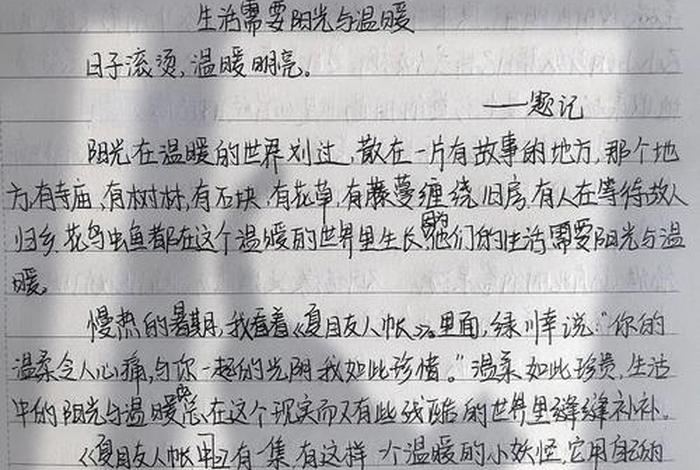 生活需要阳光与温暖
日子滚烫,温暖明亮。
——题记
阳光在温暖的世界划过,散在一片有故事的地方,那个地
方,有寺庙,有树林,有石块,有花草,有藤蔓缠绕旧房,有人在等待故人
归乡,花鸟虫鱼都在这个温暖的世界里生长,他们的生活需要阳光与温
暖。
慢热的暑期,我看着《夏目友人帐》。里面,绿川幸说:“你的
温柔令人心痛,与你一起的光阴我如此珍惜。”温柔如此珍贵,生活
中的阳光与温暖总在这个现实而又有些残酷的世界里缝缝补补。
《夏目友人帐中》有一集,有这样一个温暖的小妖怪,它用自己的